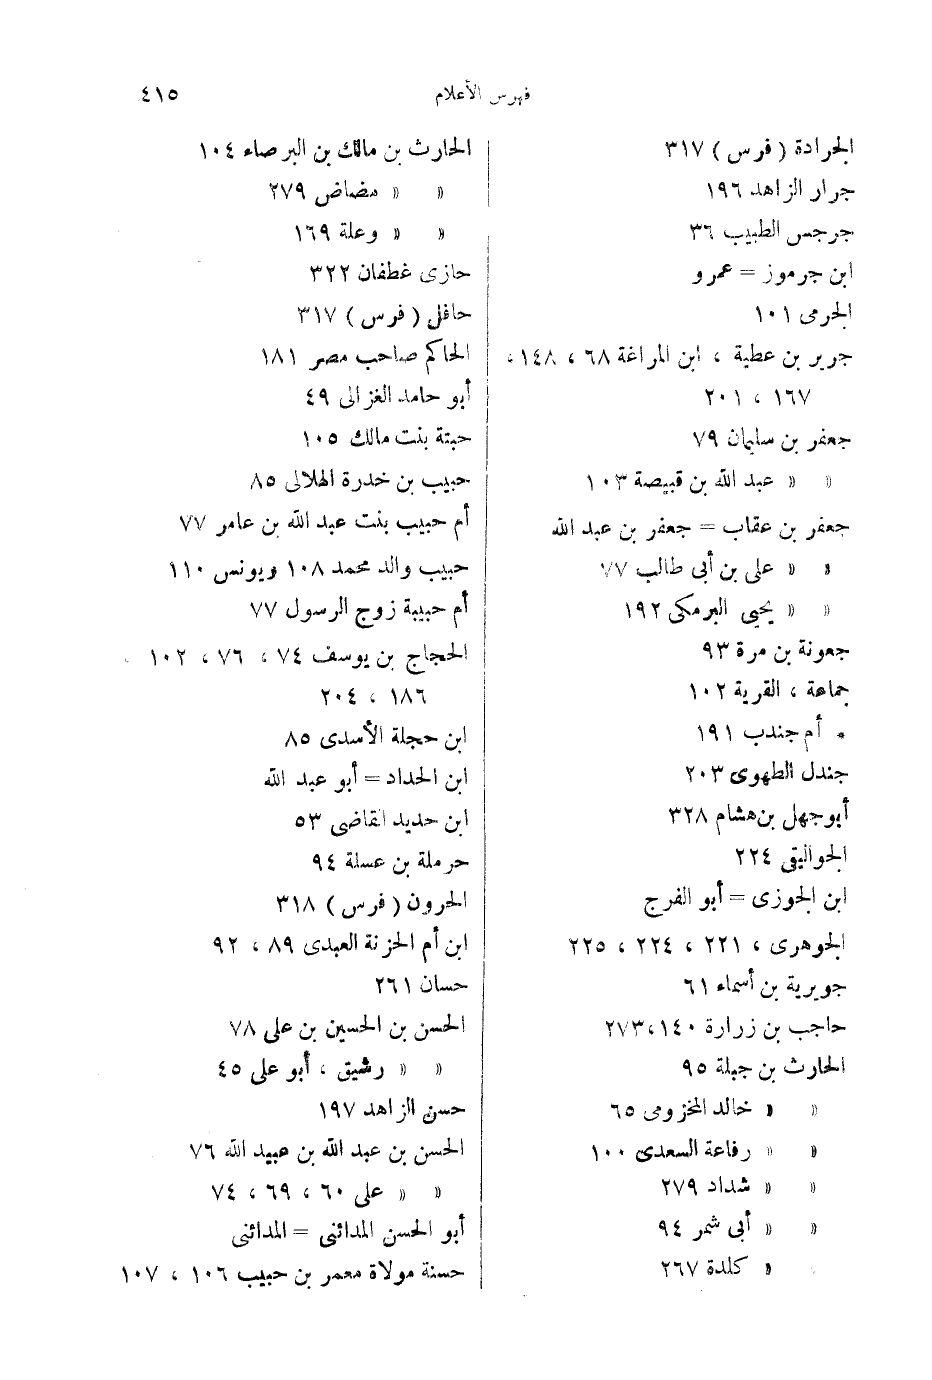 فهرس الأعلام ٤١٥
الجرادة (فرس) ٣١٧
جرار الزاهد ١٩٦
جرجس الطبيب ٣٦
ابن جرموز = عمرو
الجرمى ١٠١
جرير بن عطية ، ابن المراغة ٦٨ ، ١٤٨ ،
١٦٧ ، ٢٠١
جعفر بن سليمان ٧٩
» » عبد الله بن قبيصة ١٠٣
جعفر بن عقاب = جعفر بن عبد الله
» » على بن أبى طالب ٧٧
» » يحيى البرمكى ١٩٢
جعونة بن مرة ٩٣
جماعة ، القرية ١٠٢
* أم جندب ١٩١
جندل الطهوى ٢٠٣
أبو جهل بن هشام ٣٢٨
الجواليقى ٢٢٤
ابن الجوزى = أبو الفرج
الجوهرى ، ٢٢١ ، ٢٢٤ ، ٢٢٥
جويرية بن أسماء ٦١
حاجب بن زرارة ١٤٠، ٢٧٣
الحارث بن جبلة ٩٥
» » خالد المخزومى ٦٥
» » رفاعة السعدى ١٠٠
» » شداد ٢٧٩
» » أبى شمر ٩٤
» » كلدة ٢٦٧
الحارث بن مالك بن البرصاء ١٠٤
» » مضاض ٢٧٩
» » وعلة ١٦٩
حازى غطفان ٣٢٢
حافل (فرس) ٣١٧
الحاكم صاحب مصر ١٨١
أبو حامد الغزالى ٤٩
حبتة بنت مالك ١٠٥
حبيب بن خدرة الهلالى ٨٥
أم حبيب بنت عبد الله بن عامر ٧٧
حبيب والد محمد ١٠٨ ويونس ١١٠
أم حبيبة زوج الرسول ٧٧
الحجاج بن يوسف ٧٤ ، ٧٦ ، ١٠٢ ،
١٨٦ ، ٢٠٤
ابن حجلة الأسدى ٨٥
ابن الحداد = أبو عبد الله
ابن حديد القاضى ٥٣
حرملة بن عسلة ٩٤
الحرون (فرس) ٣١٨
ابن أم الحزنة العبدى ٨٩ ، ٩٢
حسان ٢٦١
الحسن بن الحسين بن على ٧٨
» » رشيق ، أبو على ٤٥
حسن الزاهد ١٩٧
الحسن بن عبد الله بن عبيد الله ٧٦
» » على ٦٠ ، ٦٩ ، ٧٤
أبو الحسن المدائنى = المدائنى
حسنة مولاة معمر بن حبيب ١٠٦ ، ١٠٧